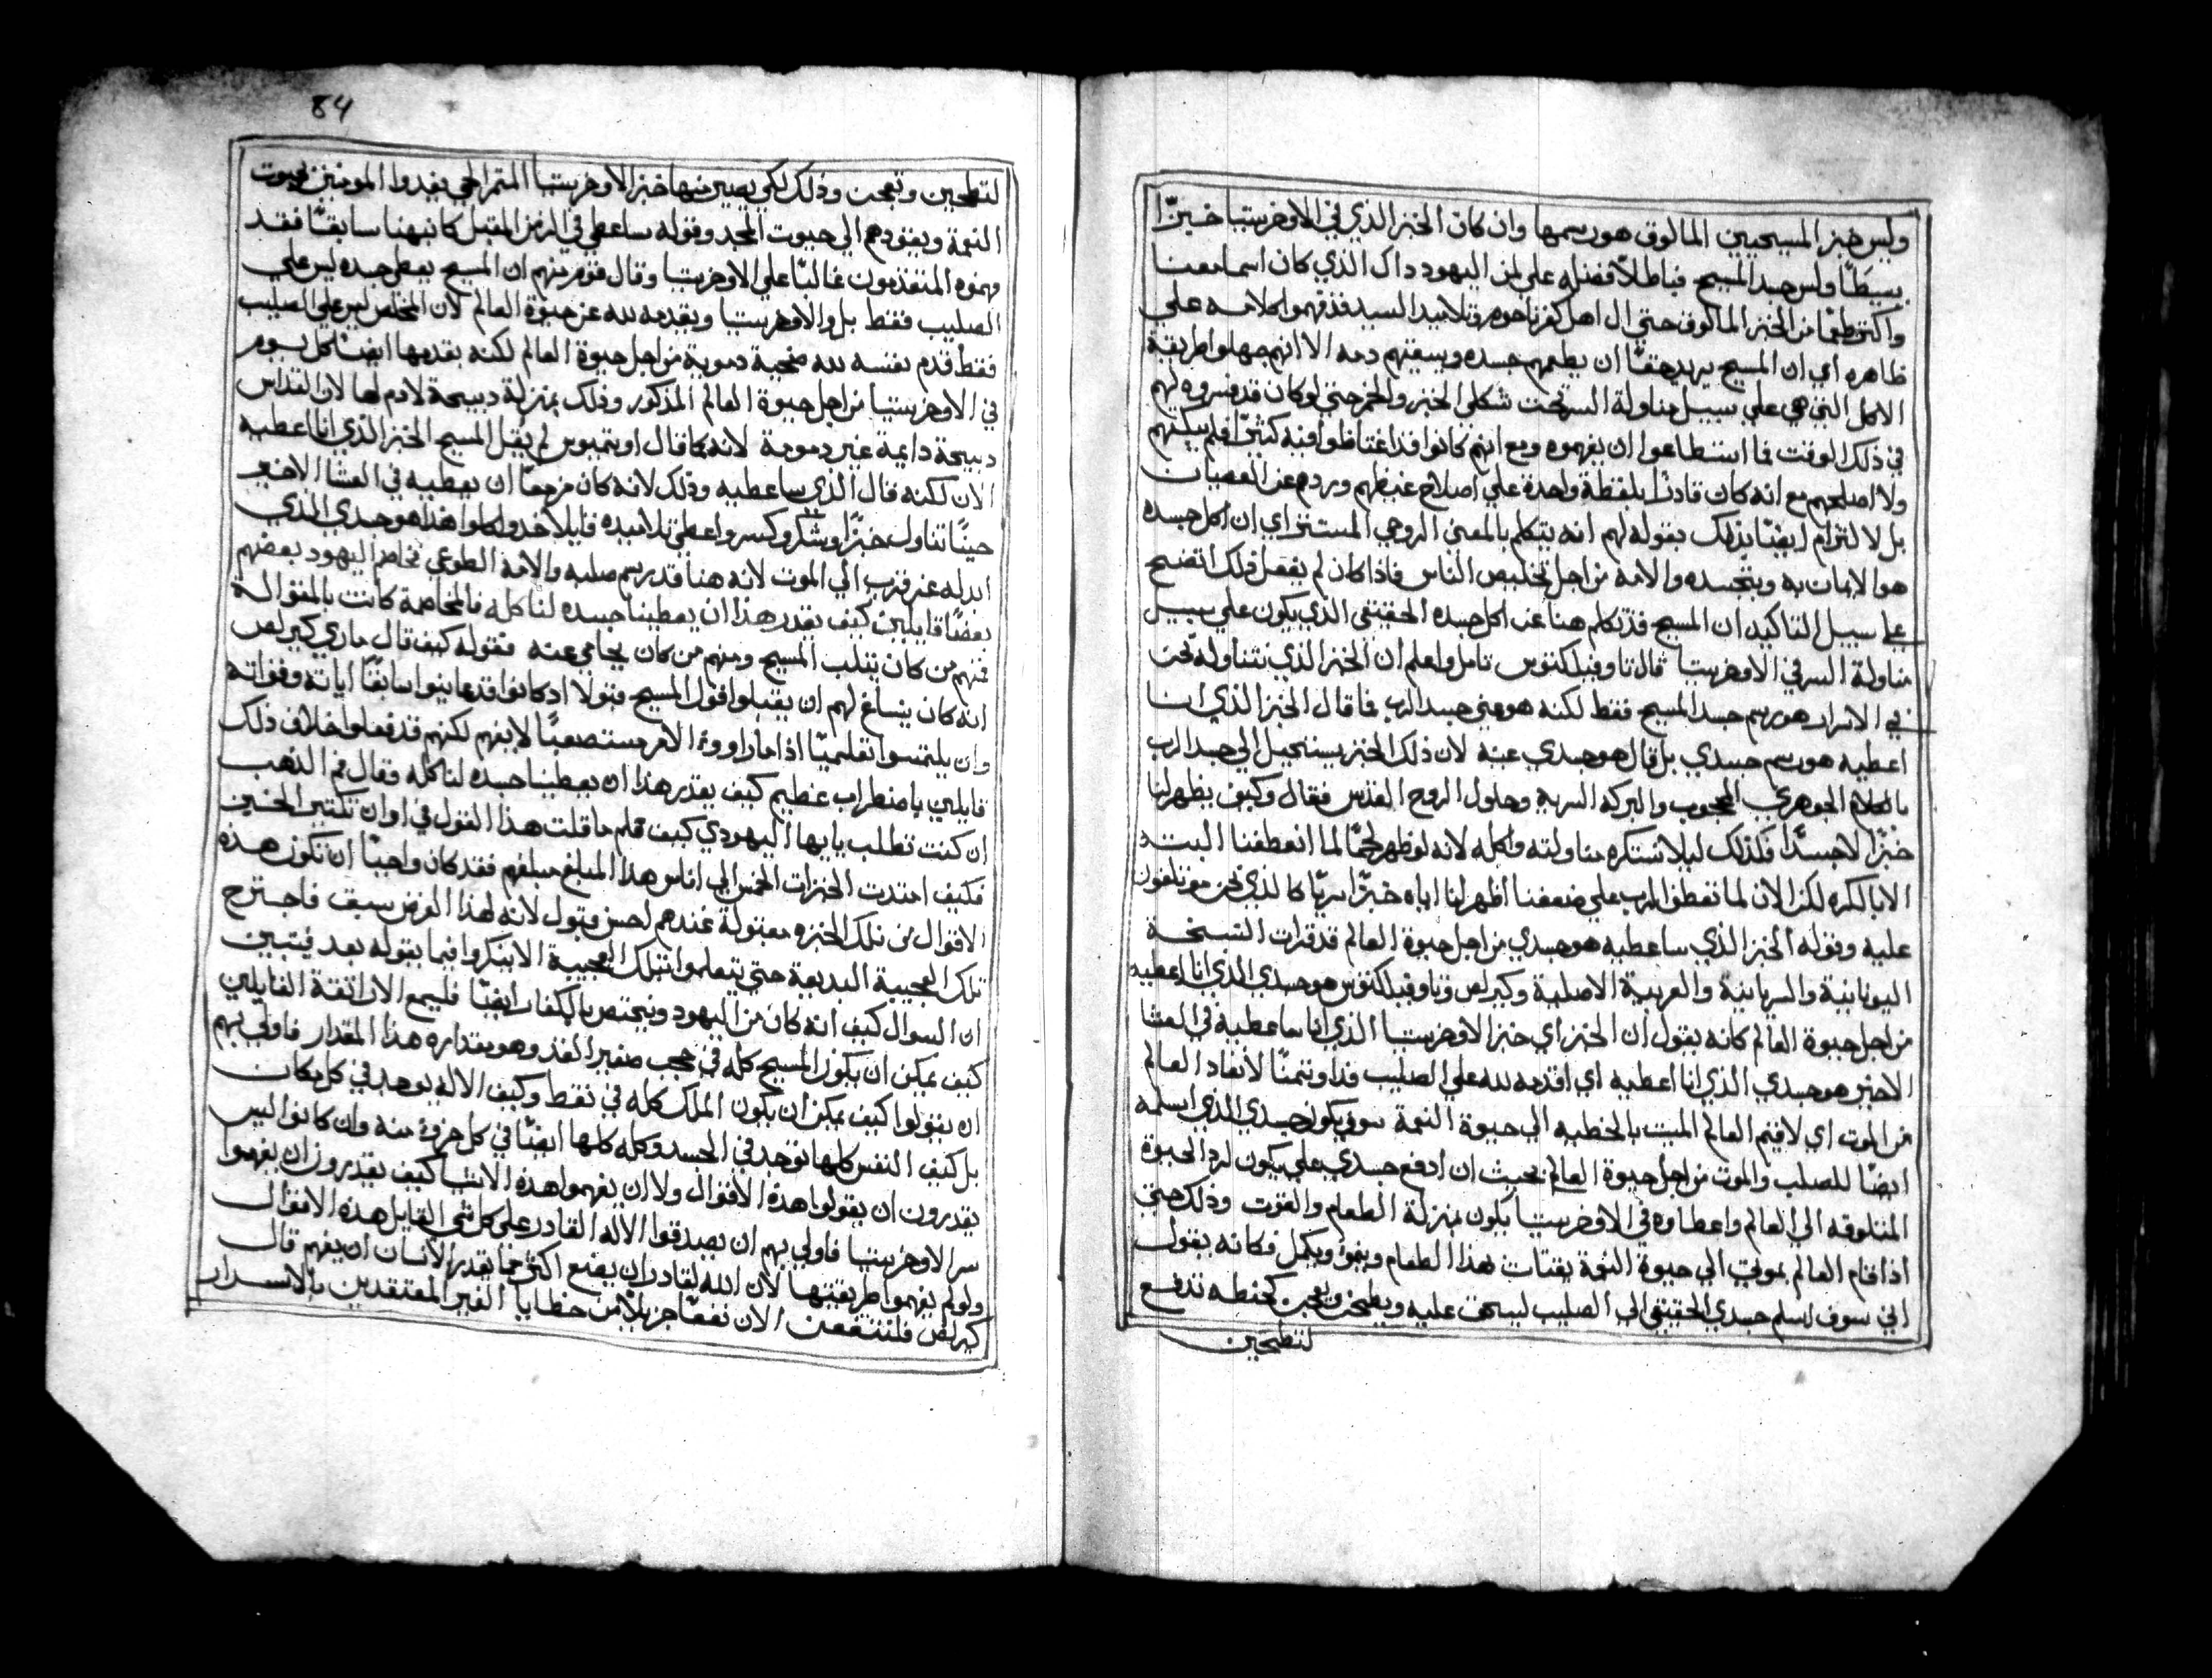 وليس خبز المسيحيين المالوق هو رسمها وان كان الخبز الذي في الاوخرستيا خبزًا
بسيطًا وليس جسد المسيح فباطلاً فضله علي لمن اليهود داك الذي كان اسما معنا
واكثر طعمًا من الخبز الماكوف حتي ال اهل كفرناحوم وتلاميد السيد فد فهموا كلامه علي
ظاهره اي ان المسيح يريد حقًا ان يطعمهم جسده ويسقيهم دمه الا انهم جهلوا طريقة
الاكل التي هي علي سبيل مناولة السر تحت شكلي الخبز والخمر حتي لو كان قد فسروه لهم
في ذلك الوقت فما استطاعوا ان يفهموه ومع انهم كانوا قد اغتاظوا منه كثيرًا فلم يبكتهم
ولا اصلحهم مع انه كان قادرًا بلفظة واحدة علي اصلاح غيظهم وردهم عن العصيان
بل لا التزام ايضًا بذلك بقوله لهم انه يتكلم بالمعني الروحي المستتر اي ان اكل جسده
هو الايمان به وبتجسده والامه من اجل تخليص الناس فاذا كان لم يفعل ذلك اتضح
علي سبيل التاكيد ان المسيح قد تكلم هنا عن اكل جسده الحقيقي الذي يكون علي سبيل
مناولة السر في الاوخرستيا قال تاوفيلكتوس تامل واعلم ان الخبز الذي نتناوله نحن
في الاسرار هو رسم جسد المسيح فقط لكنه هو عين جسد الرب فما قال الخبز الذي انا
اعطيه هو رسم جسدي بل قال هو جسدي عينه لان ذلك الخبز يستحيل الي جسد الرب
بالكلام الجوهري المحجوب والبركة السرية وحلول الروح القدس فقال وكيف يظهر لنا
خبزًا لا جسدًا فلذلك ليلا نستكره مناولته واكله لانه لو ظهر لحمًا لما انعطفنا البته
الا بالكره لكن الان لما تعطف الرب علي ضعفنا اظهر لنا اياه خبزًا سريًا كالذي نحن معتلفون
عليه وقوله الخبز الذي ساعطيه هو جسدي من اجل حيوة العالم قد قرات النسخة
اليونانية والسريانية والعربية الاصلية وكيرلص وتاوفيلكتوس هو جسدي الذي انا اعطيه
من اجل حيوة العالم كانه يقول ان الخبز اي خبز الاوخرستيا الذي انا ساعطيه في العشا
الاخير هو جسدي الذي انا اعطيه اي اقدمه لله علي الصليب فدا وثمنًا لانقاد العالم
من الموت اي لاقيم العالم الميت بالخطيه الي حيوة النعمة سوف يكون جسدي الذي اسلمه
ايضًا للصلب والموت من اجل حيوة العالم بحيث ان ادفع جسدي علي يكون لرد الحيوة
المتلوفه الي العالم واعطاوه في الاوخرستيا يكون بمنزلة الطعام والقوت وذلك حتي
اذا قام العالم بموتي الي حيوة النعمة يقتات بهذا الطعام وينمو ويكمل فكانه يقول
اني سوف اسلم جسدي الحقيقي الي الصليب ليسحق عليه ويطحن ويعجن كحنطه تدفع
لتطحين
84
لتطحين وتعجن وذلك لكي يصير منها خبز الاوخرستيا المتمراحمي يفدوا المومنين بحيوت
النعمة ويقودهم الي حيوت المجد وقوله ساعطي في الزمن المقبل كما نبهنا سابقًا فقد
فهموه المتقدمون غالبًا علي الاوخرستيا وقال قوم منهم ان المسيح يعطي جسده ليس علي
الصليب فقط بل والاوخرستيا ويقدمه لله عن حيوة العالم لان المخلص ليس علي الصليب
فقط قدم نفسه لله ضحية دموية من اجل حيوة العالم لكنه يقدمها ايضًا كل يوم
في الاوخرستيا من اجل حيوة العالم المذكور وذلك بمنزلة دبيحة لا دم لها لان القداس
دبيحة دايمة غير دموية لانه كما قال اوتيميوس لم يقل المسيح الخبز الذي انا اعطيه
الان لكنه قال الذي ساعطيه وذلك لانه كان مزمعًا ان يعطيه في العشا الاخير
حينًا تناول خبزًا وشكر وكسر واعطي تلاميده قايلاً خدوا كلوا هذا هو جسدي الذي
ابدله عن قرب الي الموت لانه هنا قد رسم صلبه والامه الطوعي فخاصم اليهود بعضهم
بعضًا قايلين كيف يقدر هذا ان يعطينا جسده لنا كله فالمخاصمة كانت بالمقوالة
فمنهم من كان يثلب المسيح ومنهم من كان يحامي عنه فقوله كيف قال ماري كيرلص
انه كان ينساغ لهم ان يقبلوا قول المسيح قبولا اد كانوا قد عاينوا سابقًا اياته وقواته
وان يلتمسوا تعليمًا اذا ما راووا الامر مستصعبًا لا يفهم لكنهم قد فعلوا خلاف ذلك
قايلين باضطراب عظيم كيف يقدر هذا ان يعطينا جسده لنا كله فقال فم الذهب
ان كنت تطلب يا ايها اليهودي كيف فلم ما قلت هذا القول في اوان تكثير الخبز
فكيف امتدت الخبزات الخمس الي اناس هذا المبلغ مبلغهم فقد كان واجبًا ان تكون هذه
الاقوال من تلك الخبزه مقبولة عندهم احسن قبول لانه لهذا الغرض سبق فاجترح
تلك العجيبة البديعة حتي يتعلموا بتلك العجيبة الا ينكروا فيما يقوله بعد فيتبين
ان السوال كيف انه كان من اليهود ويختص بالكفار ايضًا فليسمع الاراتقة القايلين
كيف يمكن ان يكون المسيح كله في حجب صغير القد وهو بمقداره هذا المقدار فاولي بهم
ان يقولوا كيف يمكن ان يكون الملك كله في نقط وكيف الاله يوجد في كل مكان
بل كيف النفس كلها توجد في الجسد وكله كلها ايضًا في كل جزو منه وان كانوا ليس
يقدرون ان يقولوا هذه الاقوال ولا ان يفهموا هذه الاشيا كيف يقدرون ان يفهموا
سر الاوخرستيا فاولي بهم ان يصدقوا الاله القادر علي كل شي القايل هذه الاقوال
ولو لم يفهموا طريقتها لان الله لقادر ان يصنع اكثر مما يقدر الانسان ان يفهم قال
كيرلص فلننتفعن الان نفعًا جزيلاً من خطايا الغير المعتقدين بالاسرار